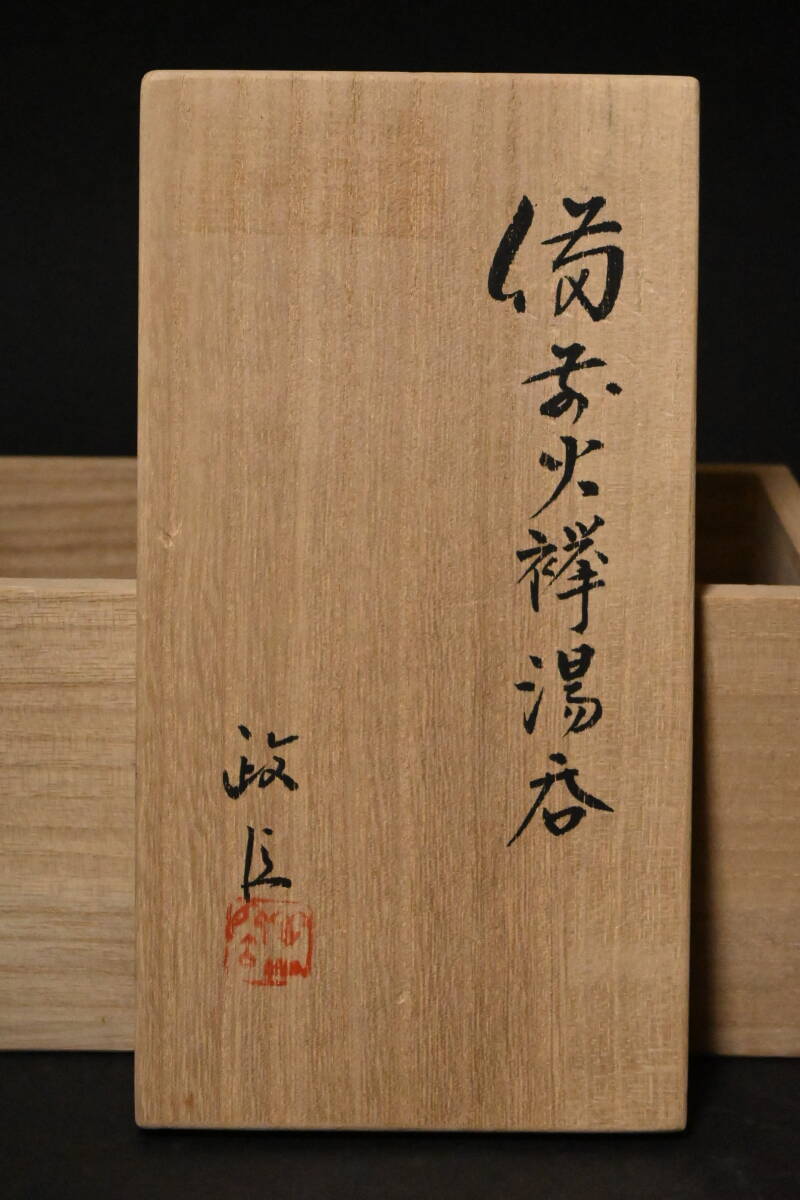 備前火襷湯呑
政臣